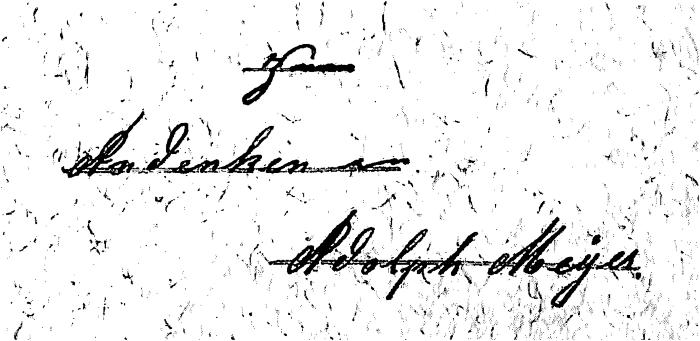 Zum
Andenken an
Adolph Meyer.